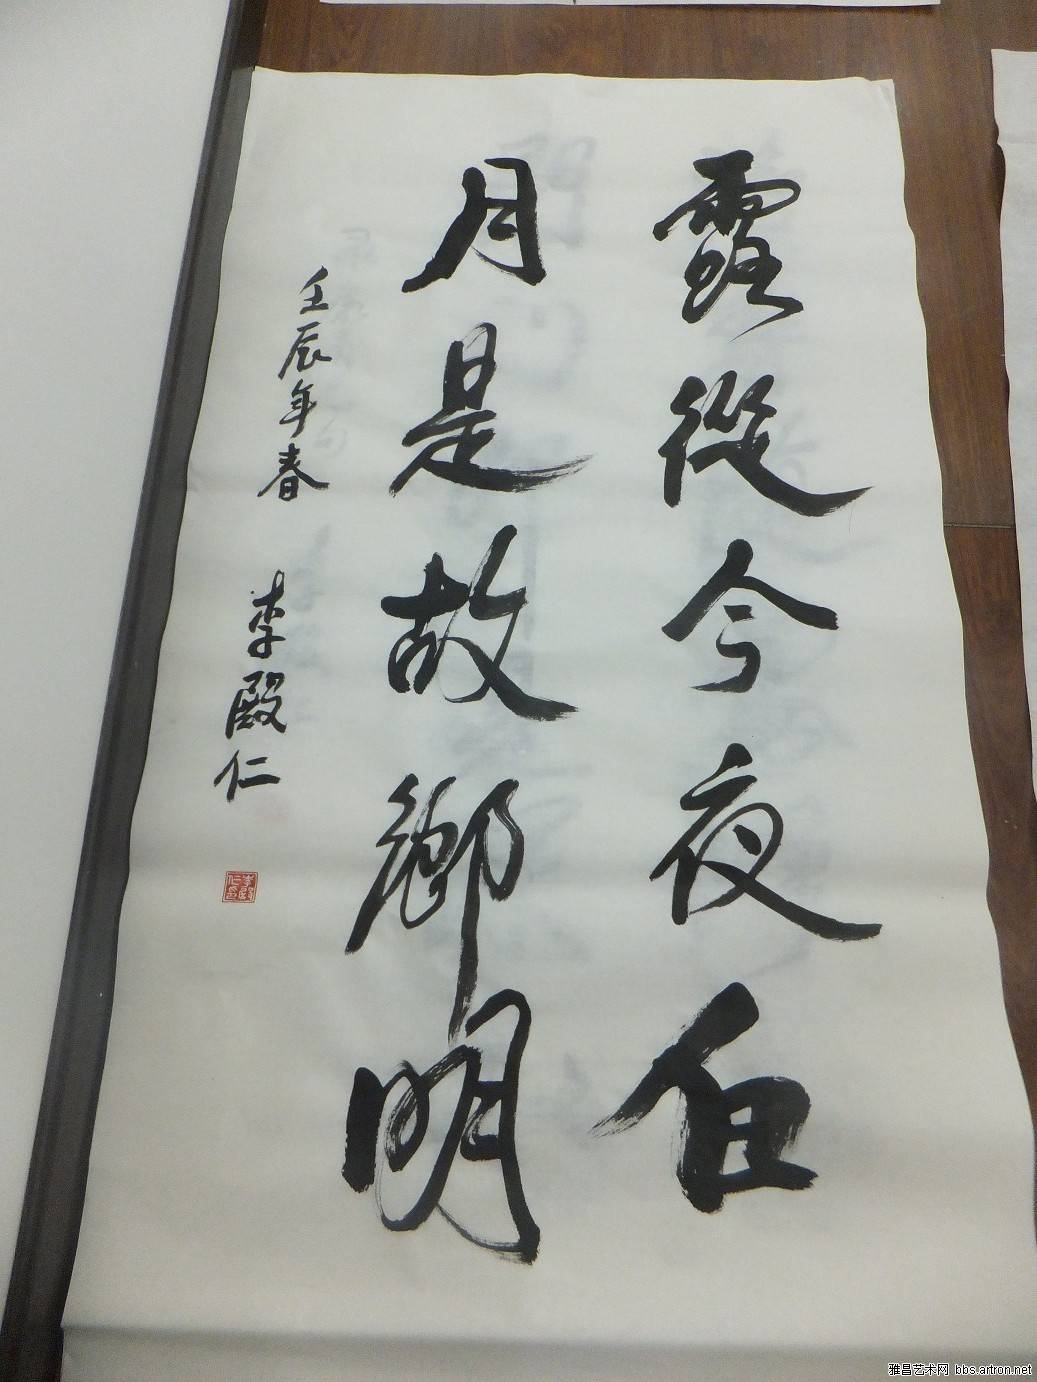 露從今夜白
月是故鄉明
壬辰年春 李殿仁
雅昌艺术网 bbs.artron.net